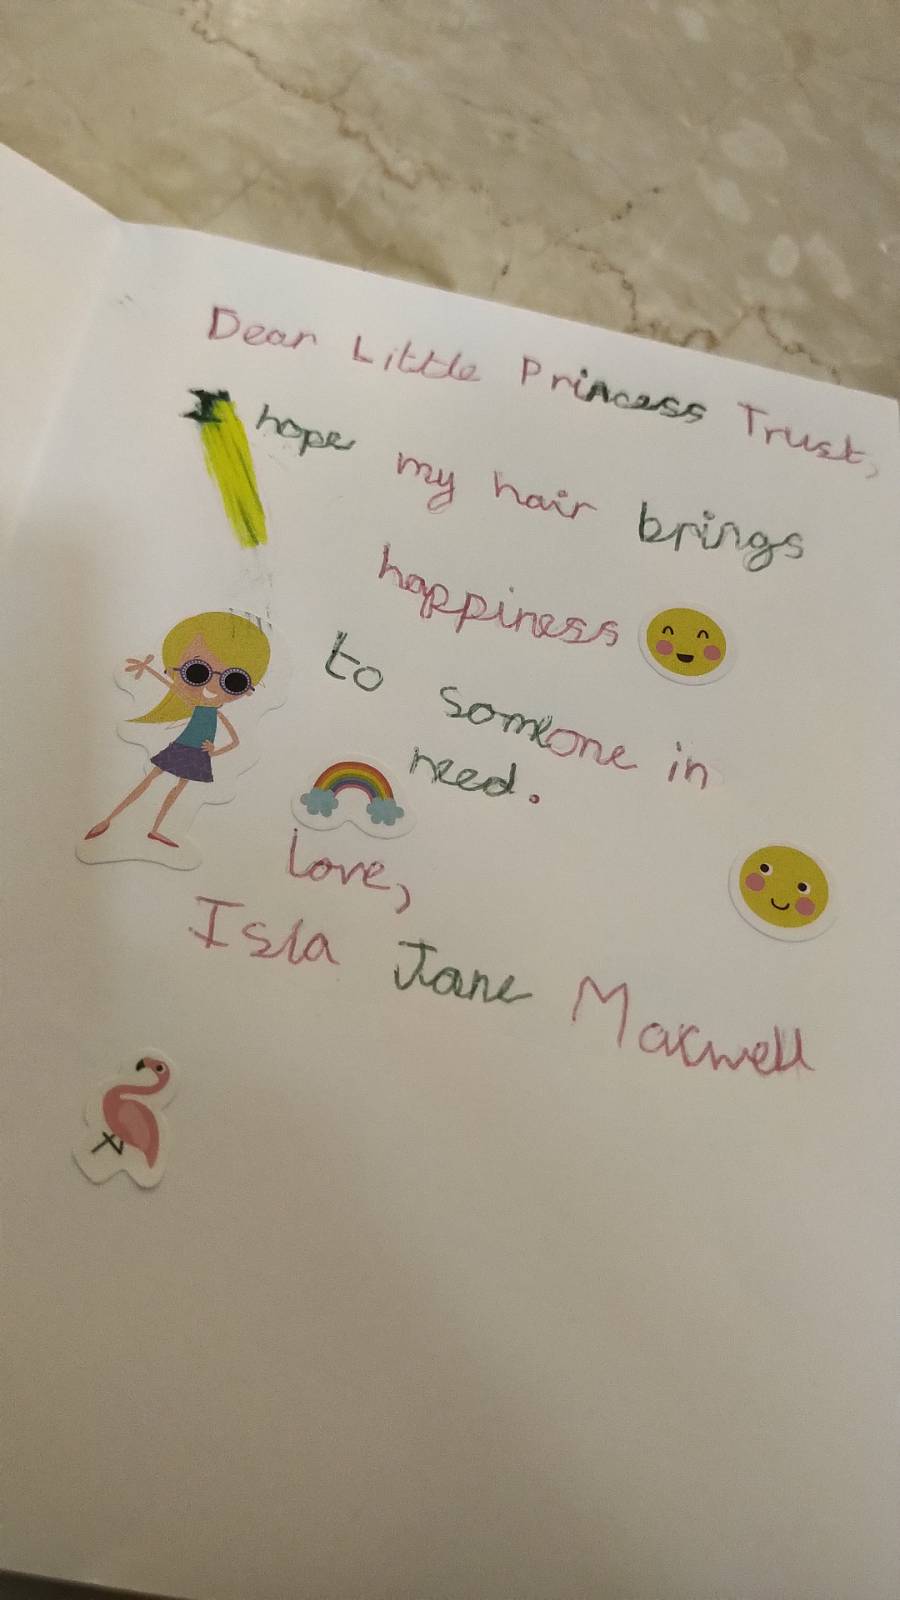 Dear Little Princess Trust,
I hope my hair brings
happiness
to someone in
need.
Love,
Isla Jane Maxwell